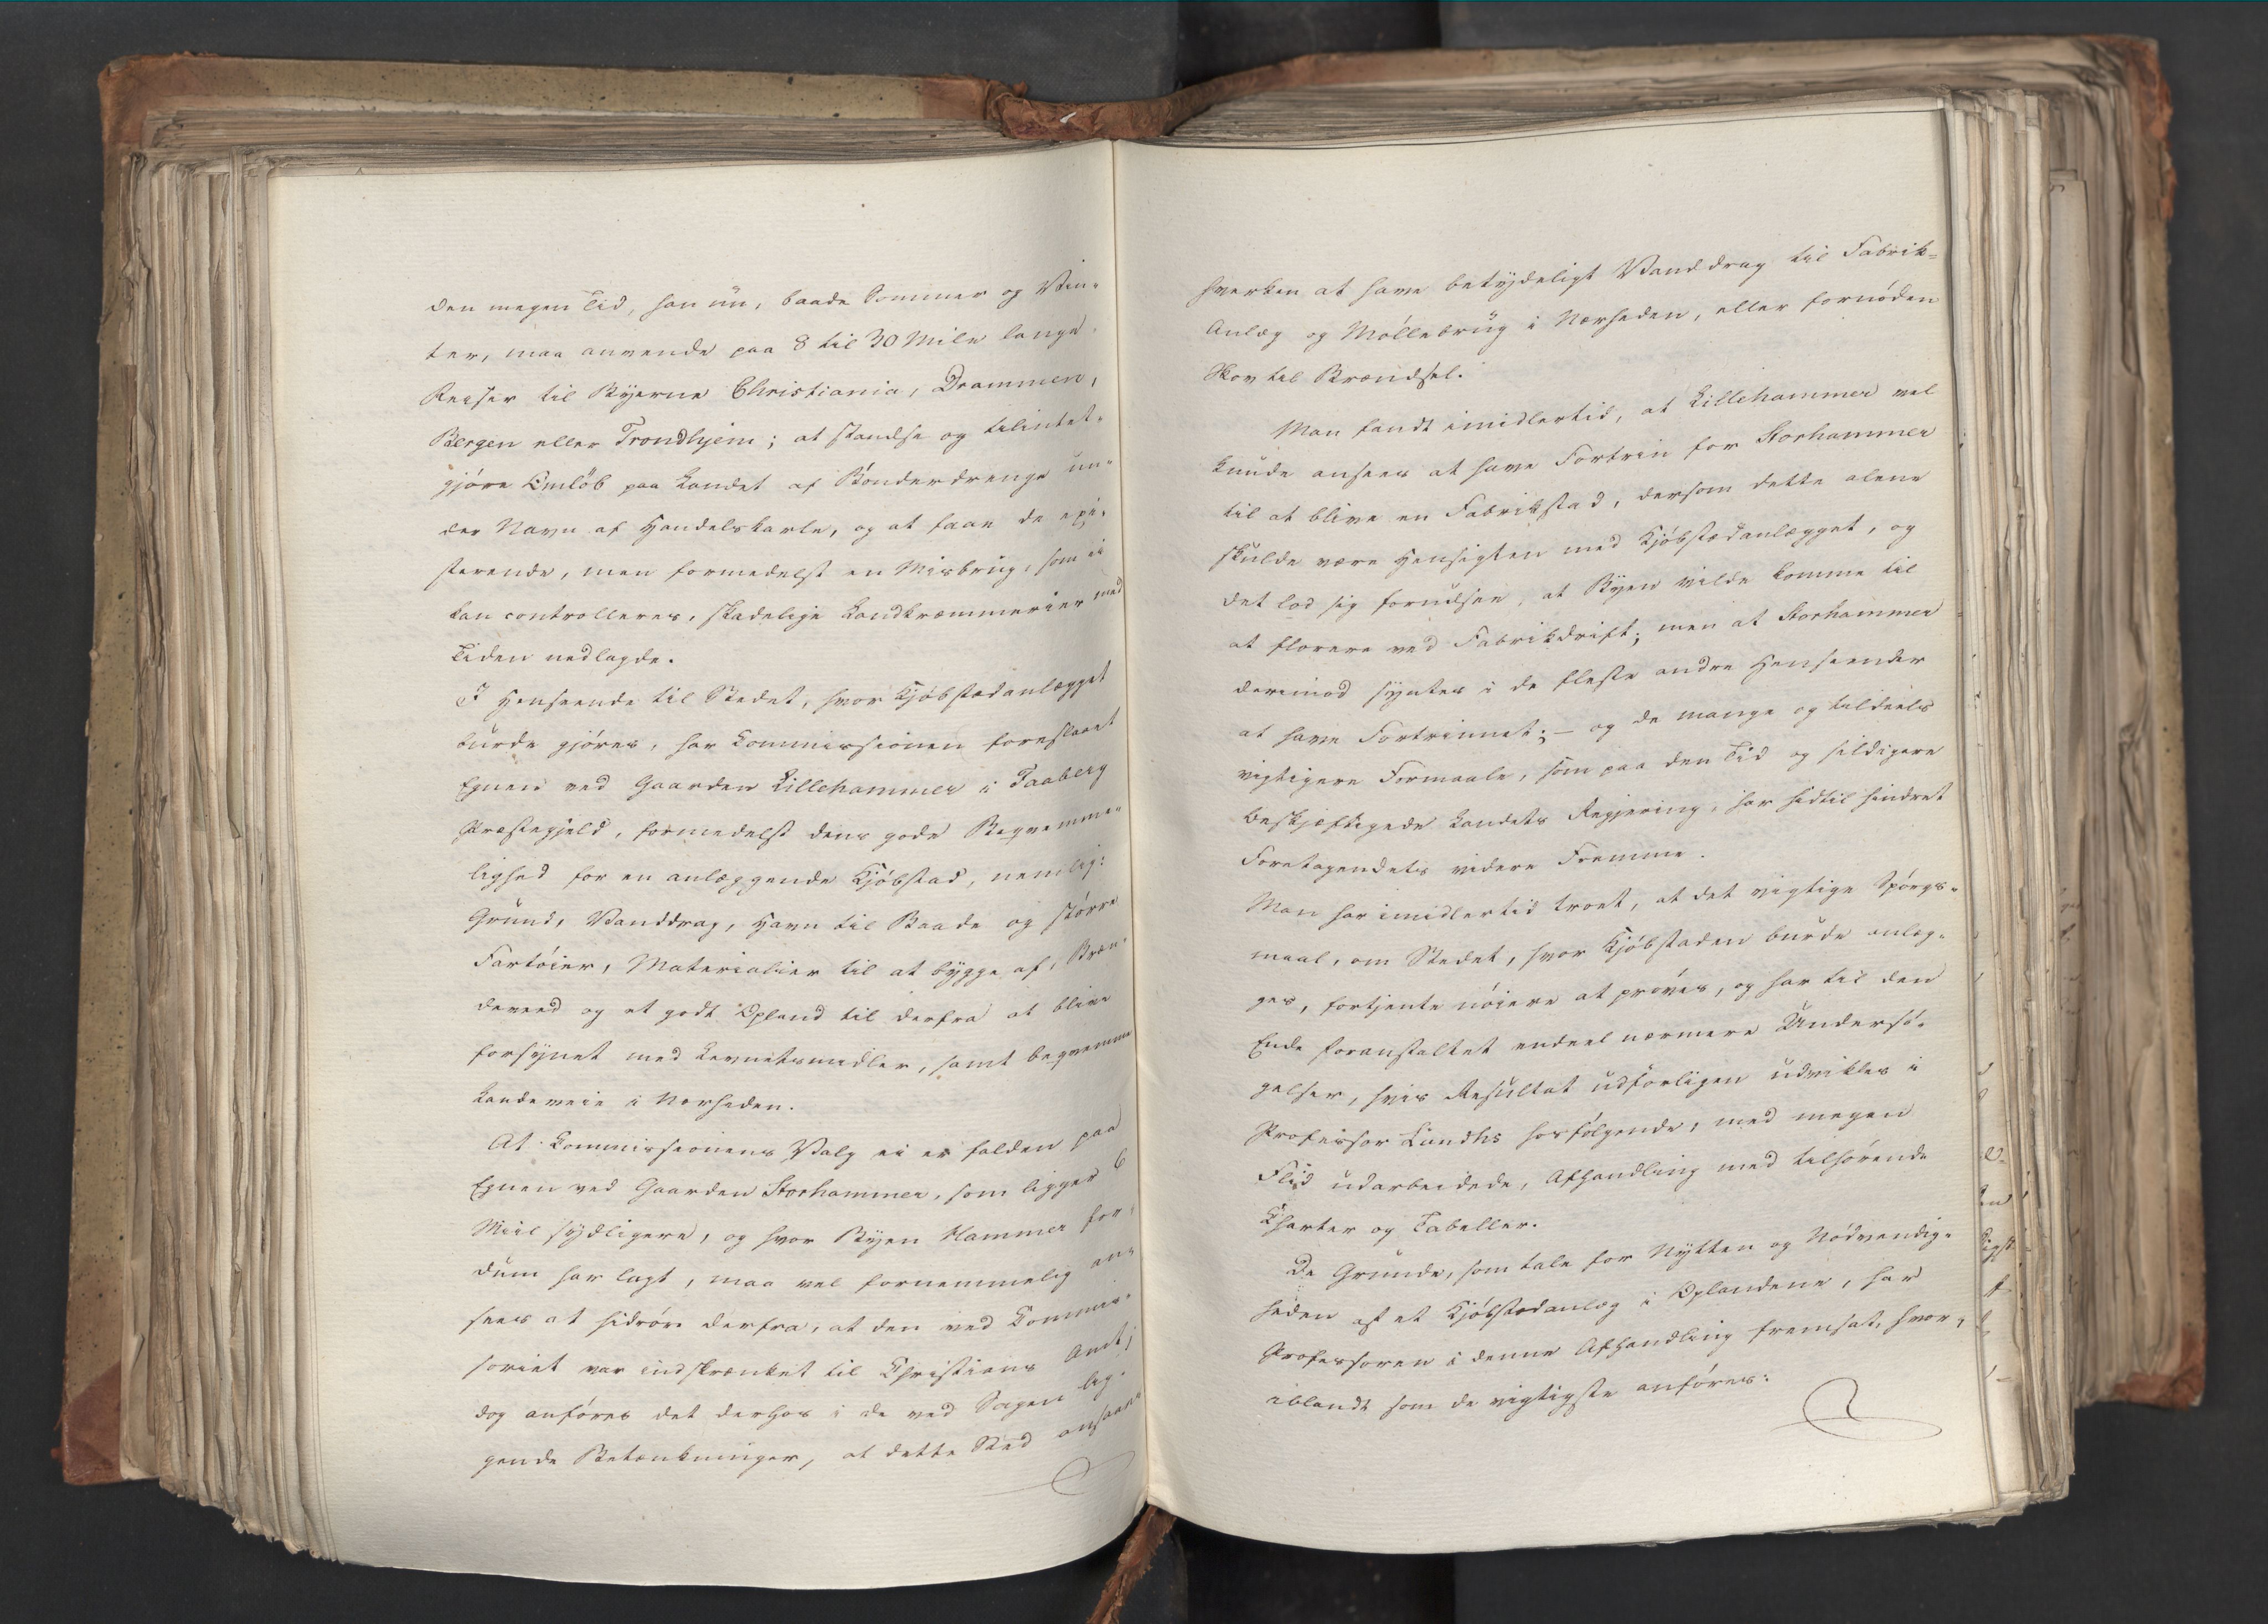 den megen Tid, han nu, baade Sommer og Vin-
ter, maa anvende paa 8 til 30 Mile lange
Reiser til Byerne Christiania, Drammen,
Bergen eller Trondhjem; at standse og tilintet-
gjøre Omløb paa Landet af Bønderdrenge un-
der Navn af Handelskarle, og at faae de exi-
sterende, men formedelst en Misbrug, som ei
kan controlleres, skadelige Landkræmmerier med
Tiden nedlagde.
I Henseende til Stedet, hvor Kjøbstadanlægget
burde gjøres, har Kommissionen foreslaaet
Egnen ved Gaarden Lillehammer i Faaberg
Præstegjeld, formedelst dens gode Beqvemme-
lighed for en anlæggende Kjøbstad, nemlig:
Grund, Vanddrag, Havn til Baade og større
Fartøier, Materialier til at bygge af, Bræn-
deveed og et godt Opland til derfra at blive
forsynet med Levnetsmidler, samt beqvemme
Landeveie i Nærheden.
At Kommissionens Valg ei er falden paa
Egnen ved Gaarden Storhammer, som ligger 6
Miil sydligere, og hvor Byen Hammer for-
dum har lagt, maa vel fornemmelig an-
sees at hidrøre derfra, at den ved Commis-
soriet var indskrænket til Christians Amt;
dog anføres det derhos i de ved Sagen lig-
gende Betænkninger, at dette Sted ansaaes
hverken at have betydeligt Vanddrag til Fabrik-
Anlæg og Møllebrug i Nærheden, eller fornøden
Skov til Brændsel.
Man fandt imidlertid, at Lillehammer vel
kunde ansees at have Fortrin for Storhammer
til at blive en Fabrikstad, dersom dette alene
skulde være Hensigten med Kjøbstadanlægget, og
det lod sig forudsee, at Byen vilde komme til
at florere ved Fabrikdrift; men at Storhammer
derimod syntes i de fleste andre Henseender
at have Fortrinnet; – og de mange og tildeels
vigtigere Formaale, som paa den Tid og sildigere
beskjæftigede Landets Regjering, har hidtil hindret
Foretagendets videre Fremme.
Man har imidlertid troet, at det vigtige Spørgs-
maal, om Stedet, hvor Kjøbstaden burde anlæg-
ges, fortjente nøiere at prøves, og har til den
Ende foranstaltet endeel nærmere Undersø-
gelser, hvis Resultat udførligen udvikles i
Professor Lundhs hosfølgende, med megen
Flid udarbeidede, Afhandling med tilhørende
Charter og Tabeller.
De Grunde, som tale for Nytten og Nødvendig-
heden af et Kjøbstadanlæg i Oplandene, har
Professoren i denne Afhandling fremsat, hvor-
iblandt som de vigtigste anføres: